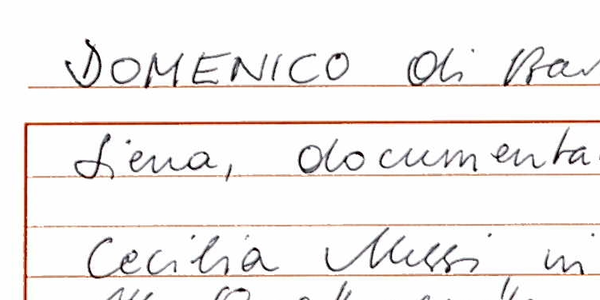 DOMENICO di Bar
Siena, documenta
Cecilia Mussi in